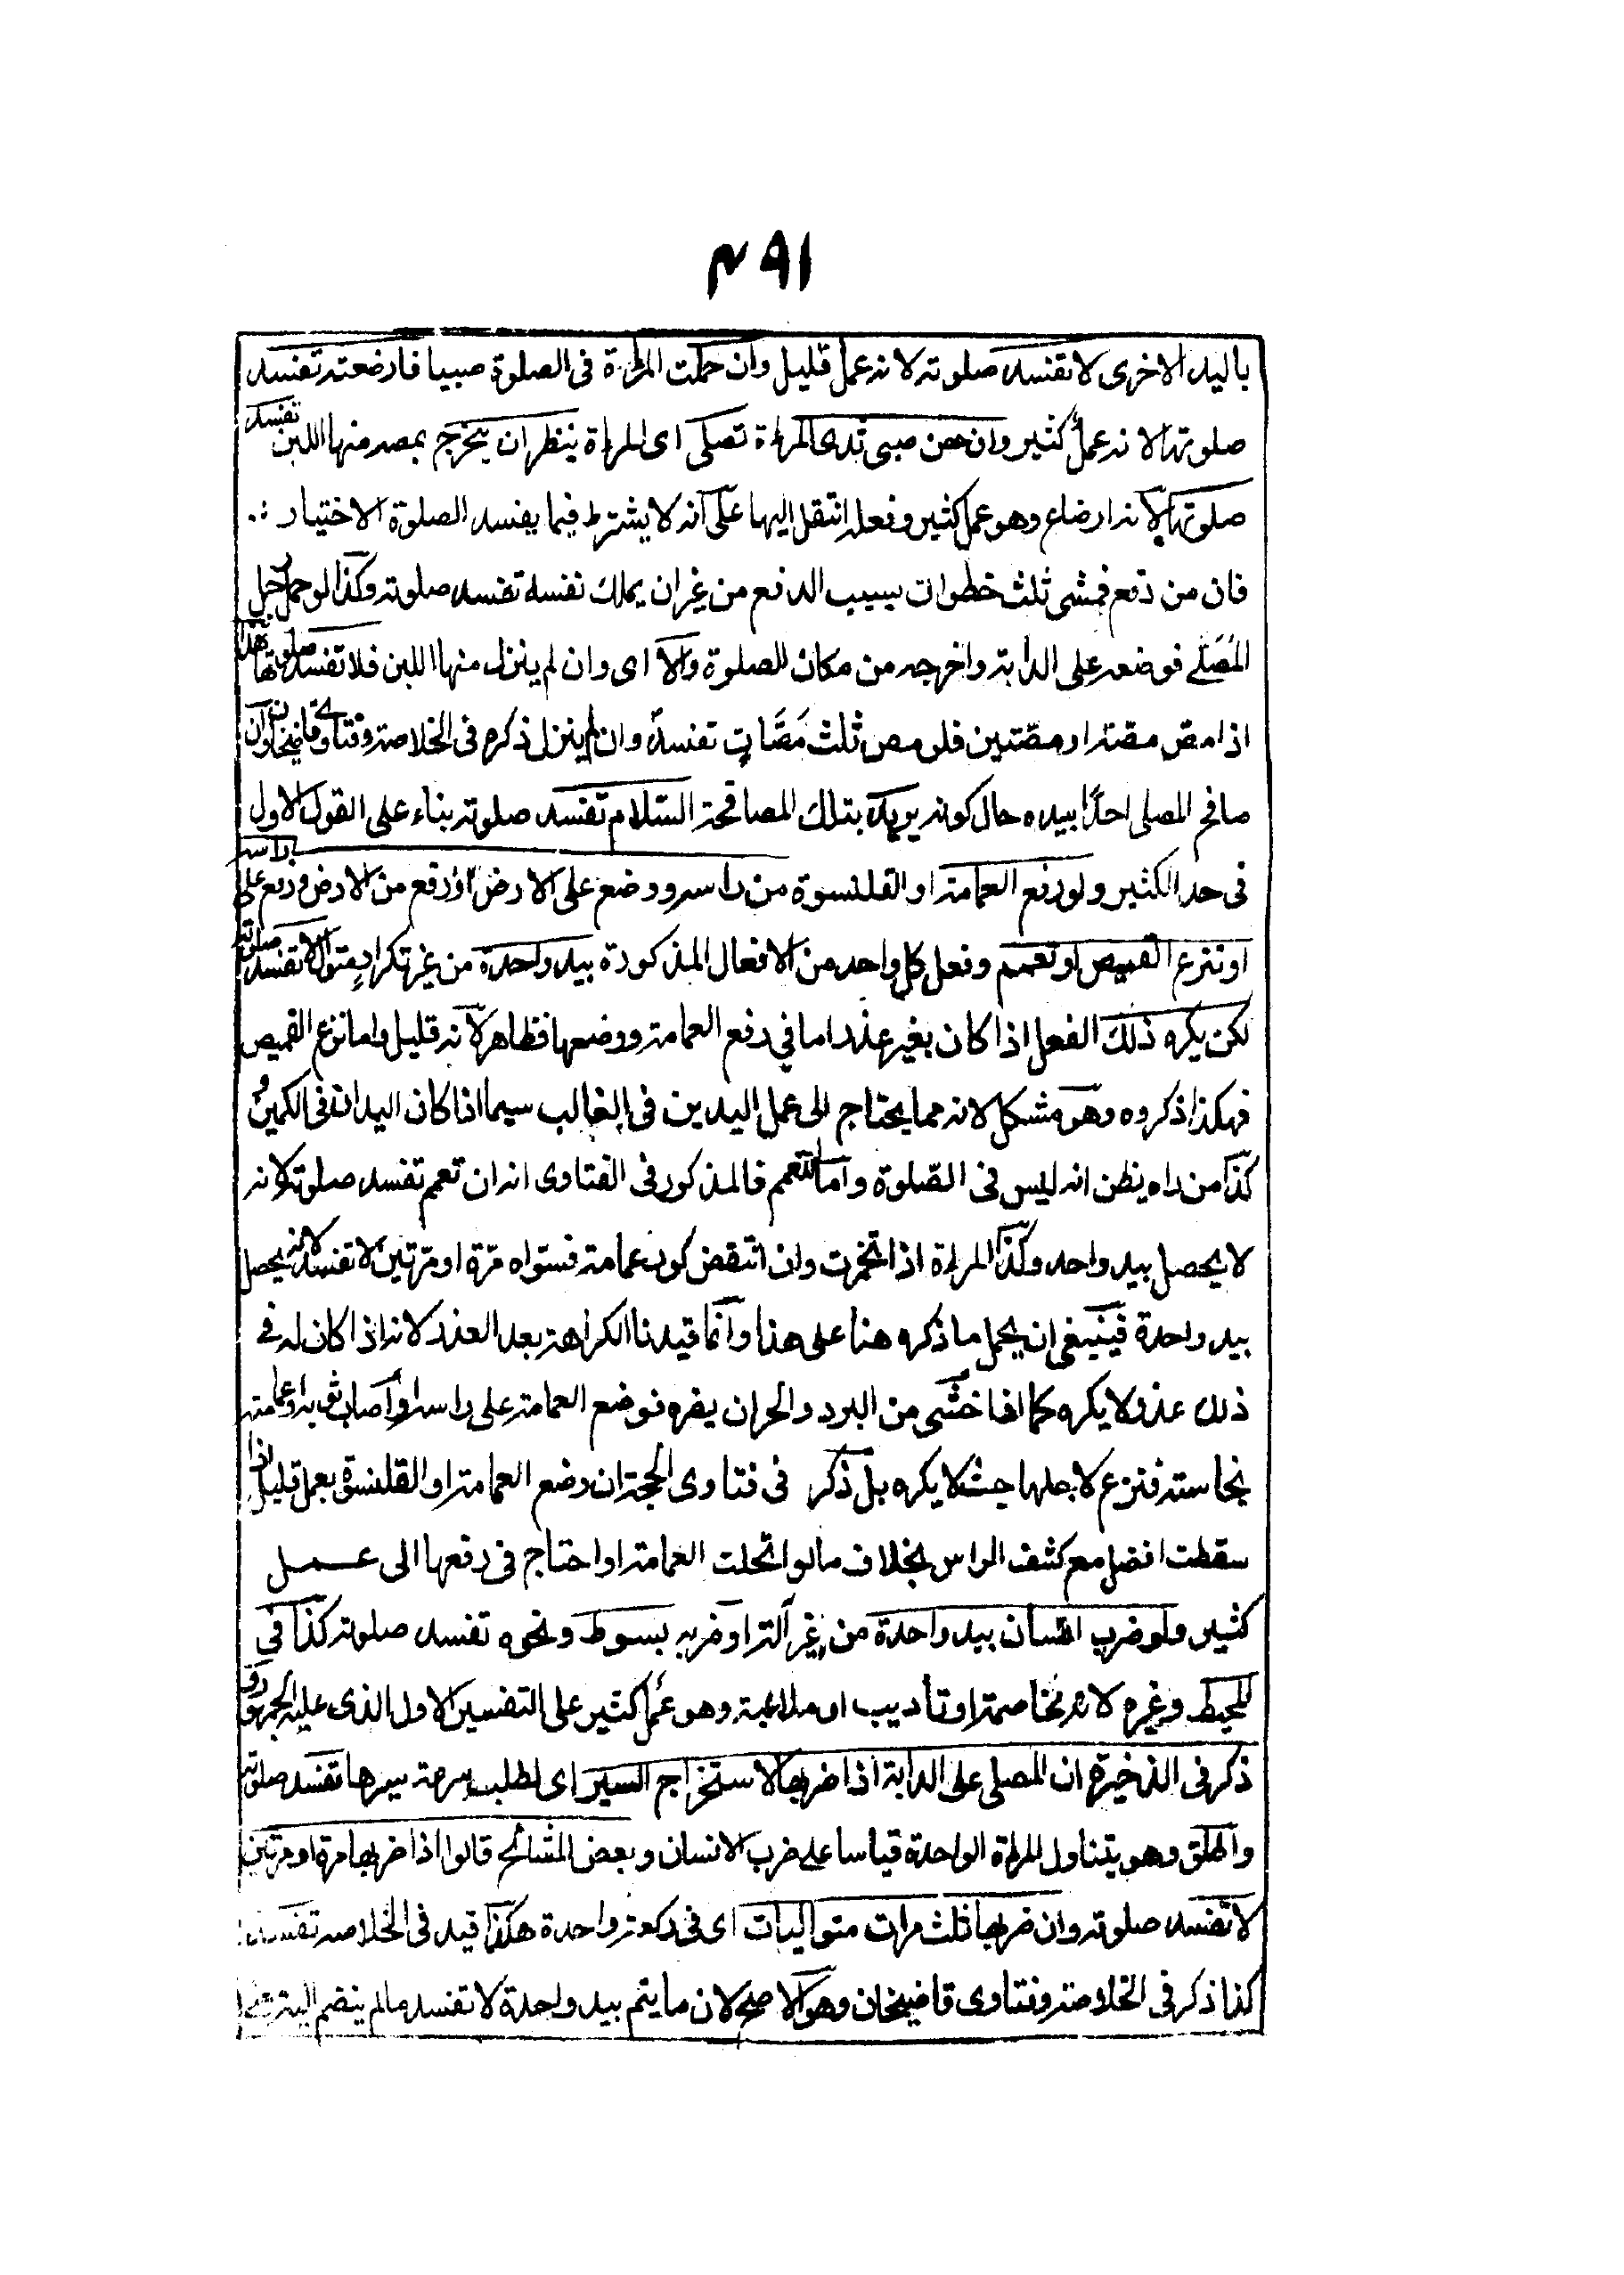 ۴۹۱
باليد الاخرى لا تفسد صلوته لانه عمل قليل وان حملت المرأة فى الصلوة صبيا فارضعته تفسد
صلوتها لانه عمل كثير وان مص صبى ثدى المرأة تصلى اى المرأة ينظر ان يخرج بمصه منها اللبن تفسد
صلوتها لانه ارضاع وهو عمل كثير وفعله انتقل اليها على انه لا يشترط فيما يفسد الصلوة الاختيار
فان من دفع فمشى ثلث خطوات بسبب الدفع من غير ان يملك نفسه تفسد صلوته وكذا لو حمل رجل
المُصَلّى فوضعه على الدابة واخرجه من مكان الصلوة والا اى وان لم ينزل منها اللبن فلا تفسد صلوتها هذا
اذا مص مصة او مصتين فلو مص ثلث مَصَّاتٍ تفسد وان لم ينزل ذكره فى الخلاصة وفتاوى قاضيخان وان
صافح المصلى احدًا بيده حال كونه يريد بتلك المصافحة السّلام تفسد صلوته بناء على القول الاول
فى حد الكثير ولو رفع العمامة او القلنسوة من راسه ووضع على الارض او رفع من الارض ووضع على راسه
او نزع القميص او تعمم وفعل كل واحد من الافعال المذكورة بيد واحدة من غير تكرار متوال لا تفسد صلوته
لكن يكره ذلك الفعل اذا كان بغير عذر اما فى رفع العمامة ووضعها فظاهر لانه قليل واما نزع القميص
فهكذا ذكروه وهو مشكل لانه مما يحتاج الى عمل اليدين فى الغالب سيما اذا كان اليدان فى الكمين و
كذا من راه يظن انه ليس فى الصّلوة واما التعمم فالمذكور فى الفتاوى انه ان تعمم تفسد صلوته لانه
لا يحصل بيد واحد وكذا المرأة اذا تخمرت وان انتقض كور عمامته فسوّاه مرّة او مرّتين لا تفسد لانه يحصل
بيد واحدة فينبغى ان يحمل ما ذكره هنا على هذا وانما قيدنا الكراهة بعد العذر لانه اذا كان له فى
ذلك عذر لا يكره كما اذا خشى من البرد والحر ان يضره فوضع العمامة على راسه او اصاب ثوبه او عمامته
نجاسة فنزع لاجلها حيث لا يكره بل ذكر فى فتاوى الحجة ان رفع العمامة او القلنسوة بعمل قليل اذا
سقطت افضل مع كشف الراس بخلاف ما لو انحلت العمامة او احتاج فى رفعها الى عمل
كثير ولو ضرب انسان بيد واحدة من غير آلة او ضربه بسوط ونحوه تفسد صلوته كذا فى
المحيط وغيره لانه مخاصمة او تأديب او ملاعبة وهو عمل كثير على التفسير الاول الذى عليه الجمهور و
ذكر فى الذخيرة ان المصلى على الدابة اذا ضربها لاستخراج السير اى لطلب سرعة سيرها تفسد صلوته
واطلق وهو يتناول المرة الواحدة قياسا على ضرب الانسان وبعض المشائخ قالوا اذا ضربها مرة او مرتين
لا تفسد صلوته وان ضربها ثلث مرات متواليات اى فى ركعة واحدة هكذا قيد فى الخلاصة تفسد
كذا ذكر فى الخلاصة وفتاوى قاضيخان وهو الاصح لان ما يتم بيد واحدة لا تفسد ما لم ينضم اليه